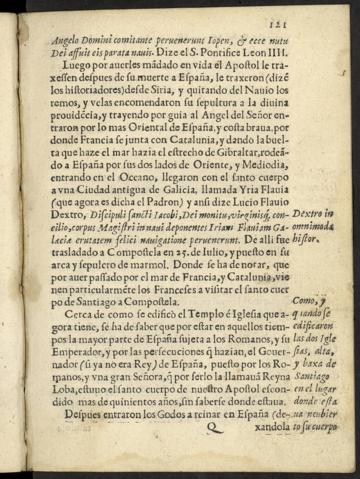 121
Angelo Domini comitante peruenerunt Iopen, & ecce nutu
Dei affuit eis parata nauis. Dize el S. Pontifice Leon IIII.
Luego por auerles mãdado en vida el Apostol le tra-
xessen despues de su muerte a España, le traxeron (dizẽ
los historiadores) desde Siria, y quitando del Nauio los
remos, y velas encomendaron su sepultura a la diuina
prouidẽcia, y trayendo por guia al Angel del Señor en-
traron por lo mas Oriental de España, y costa braua, por
donde Francia se junta con Catalunia, y dando la buel-
ta que haze el mar hazia el estrecho de Gibraltar, rodeã-
do a España por sus dos lados de Oriente, y Mediodia,
entrando en el Occano, llegaron con el santo cuerpo
a vna Ciudad antigua de Galicia, llamada Yria Flauia
(que agora es dicha el Padron) y ansi dize Lucio Flauio
Dextro, Discipuli sancti Iacobi, Dei monitu, virginisq; con-
silio, corpus Magistri in naui deponentes Iriam Flauiam Ga-
laeciæ erutatem felici nauigatione peruenerunt. De alli fue
trasladado a Compostela en 25. de Iulio, y puesto en su
arca y sepulcro de marmol. Donde se ha de notar, que
por auer passado por el mar de Francia, y Catalunia, vie
nen particularmẽte los Franceses a visitar el santo cuer
po de Santiago a Compostela.
Cerca de como se edificò el Templo è Iglesia que a-
gora tiene, se ha de saber que por estar en aquellos tiem-
pos la mayor parte de España sujeta a los Romanos, y su
Emperador, y por las persecuciones q̃ hazian, el Gouer-
nador (ya no era Rey) de España, puesto por los Ro-
manos, y vna gran Señora, q̃ por serlo la llamauã Reyna
Loba, estuuo el santo cuerpo de nuestro Apostol escon-
dido mas de quinientos años, sin saberse donde estaua.
Despues entraron los Godos a reinar en España (de-
Q
xandola
Dextro in
omnimoda
histor.
Como, y
quando se
edificaron
las dos Igle
sias, alta,
y baxa de
Santiago
en el lugar
donde esta
ua
to su cuerpo